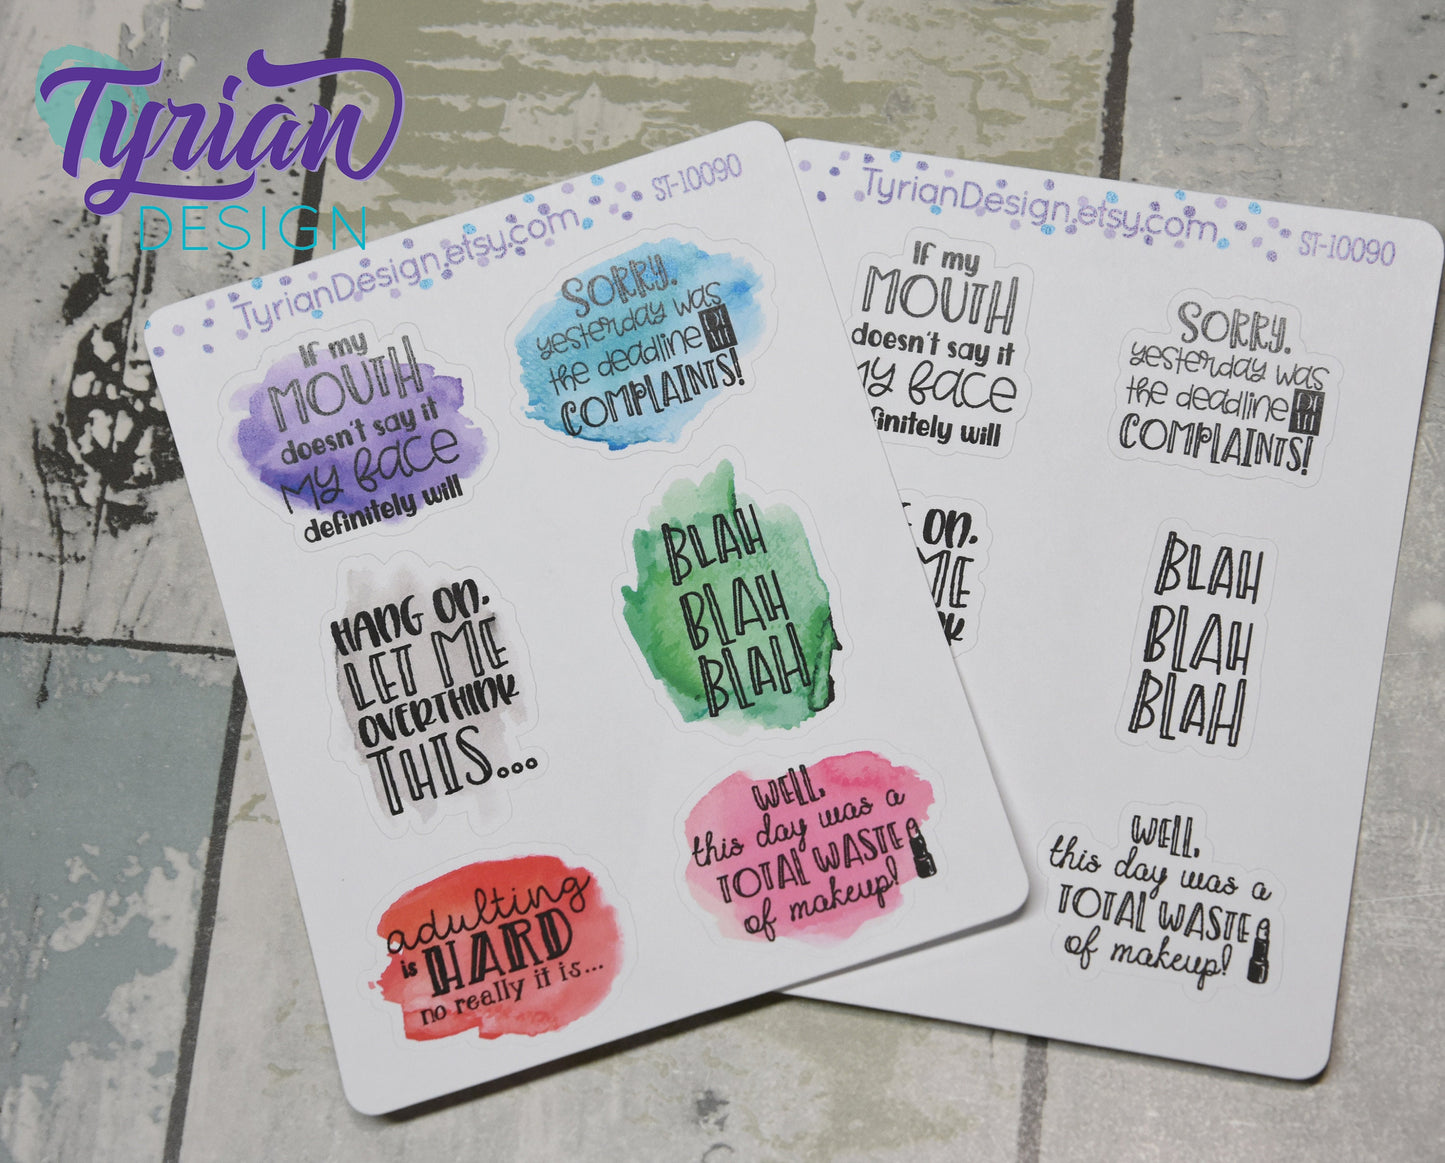 Tyrian
DESIGN
TyrianDesign.etsy.com
ST-10090
If my
MOUTH
doesn't say it
MY face
definitely will
SORRY.
yesterday was
the deadline
COMPLAINTS!
HANG ON.
LET ME
OVERTHINK
THIS...
BLAH
BLAH
BLAH
adulting
is HARD
no really it is...
WELL,
this day was a
TOTAL WASTE
of makeup!
TyrianDesign.etsy.com
ST-10090
If my
MOUTH
doesn't say it
MY face
definitely will
SORRY.
yesterday was
the deadline
COMPLAINTS!
ON.
ME
BLAH
BLAH
BLAH
WELL,
this day was a
TOTAL WASTE
of makeup!